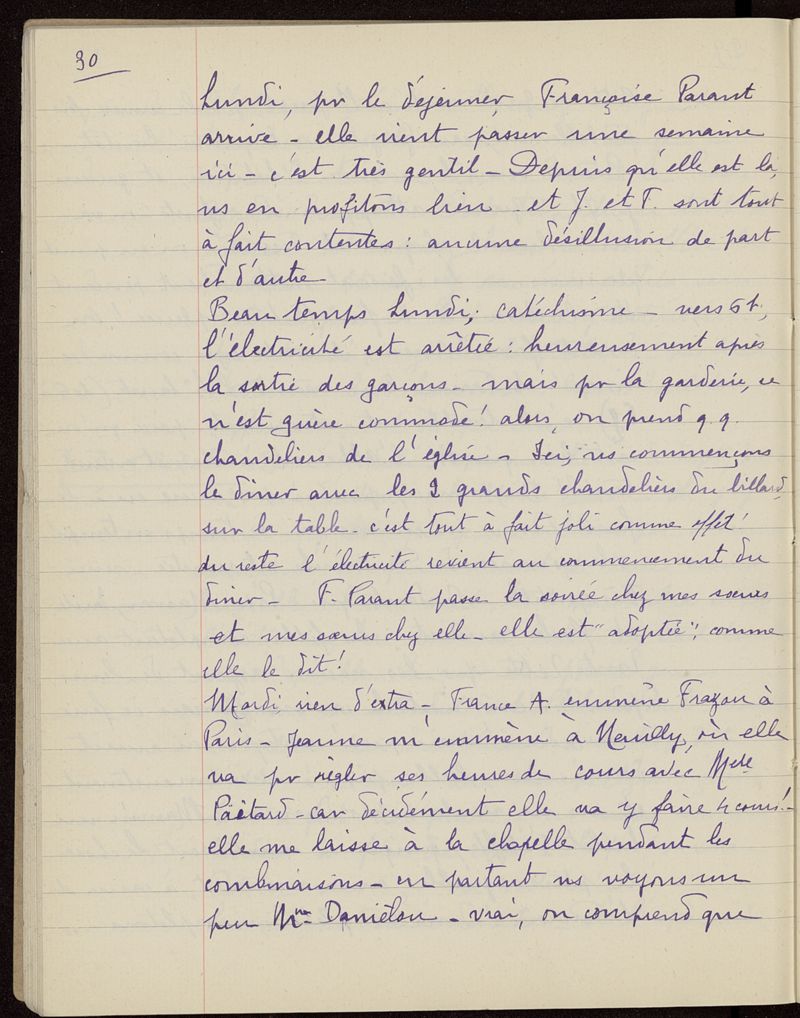 30
Lundi, pr le déjeuner, Françoise Parant
arrive - elle vient passer une semaine
ici - c'est très gentil - Depuis qu'elle est là,
ns en profitons bien - et J. et T. sont tout
à fait contentes : aucune désillusion de part
et d'autre
Beau temps Lundi; catéchisme - vers 5h,
l'électricité est arrêtée : heureusement après
la sortie des garçons - mais pr la garderie, ce
n'est guère commode! alors, on prend q.q.
chandeliers de l'église - Ici, ns commençons
le dîner avec les 2 grands chandeliers du billard,
sur la table - c'est tout à fait joli comme effet!
du reste l'électricité revient au commencement du
dîner - F. Parant passe la soirée chez mes sœurs
et mes sœurs chez elle - elle est "adoptée", comme
elle le dit!
Mardi rien d'extra - France A. emmène Frazou à
Paris - Jeanne m'emmène à Neuilly, où elle
va pr régler ses heures de cours avec Melle
Païtard - car décidément elle va y faire 4 cours! -
elle me laisse à la chapelle pendant les
combinaisons - en partant ns voyons un
peu Mme Daniélou - vrai, on comprend que